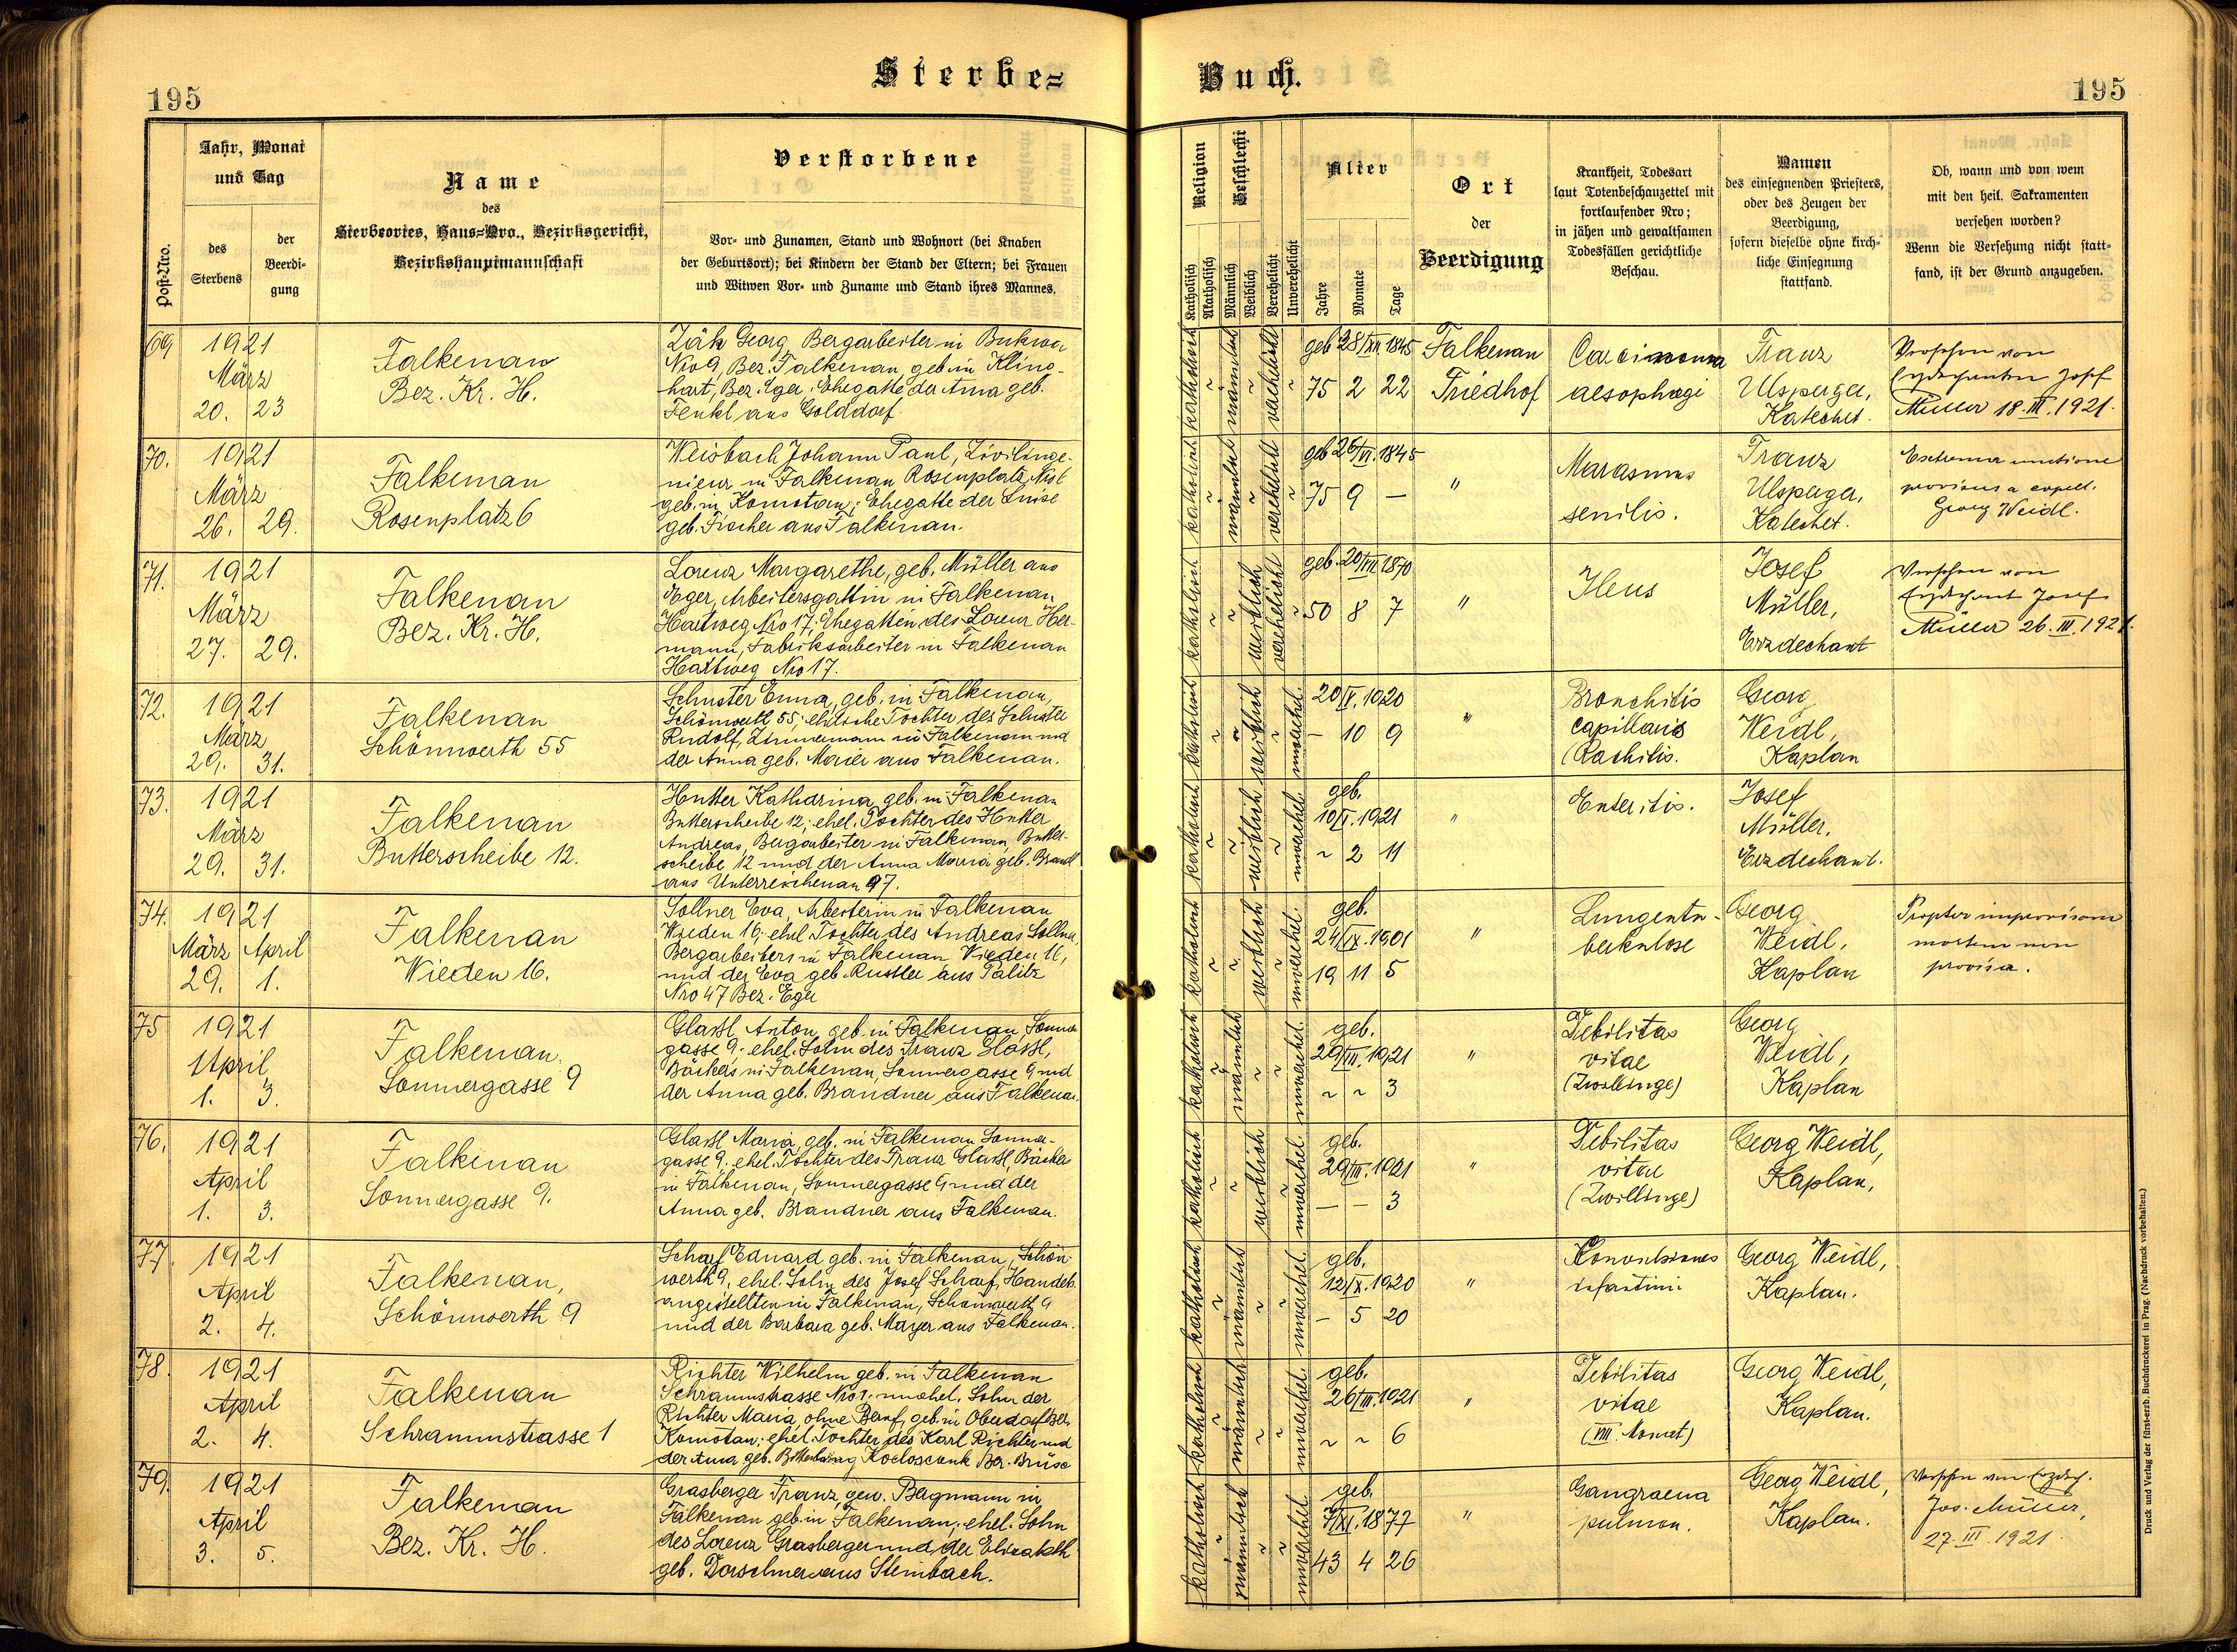 195
Sterbe=
Jahr, Monat
und Tag
Post-Nro.
des
Sterbens
der
Beerdi-
gung
Name
des
Sterbeortes, Haus=Nro., Bezirksgericht,
Bezirkshauptmannschaft
Verstorbene
Vor- und Zunamen, Stand und Wohnort (bei Knaben
der Geburtsort); bei Kindern der Stand der Eltern; bei Frauen
und Witwen Vor- und Zuname und Stand ihres Mannes.
69
1921
März
20. 23
Falkenau
Bez. Kr. H.
Zäh Georg, Bergarbeiter in Bukwa
Nro 9, Bez. Falkenau, geb. in Kling-
hart, Bez. Eger. Ehegatte der Anna geb.
Fenkl aus Golddorf.
70.
1921
März
26. 29.
Falkenau
Rosenplatz 6
Weisbach Johann Paul, Zivilinge-
nieur in Falkenau Rosenplatz Nro 6
geb. in Komotau; Ehegatte der Luise
geb. Fischer aus Falkenau.
71.
1921
März
27. 29.
Falkenau
Bez. Kr. H.
Lorenz Margarethe, geb. Müller aus
Eger, Arbeitersgattin in Falkenau
Hartweg Nro 17; Ehegattin des Lorenz Her-
mann, Fabriksarbeiter in Falkenau
Hartweg Nro 17.
72.
1921
März
29. 31.
Falkenau
Schönwerth 55
Schuster Emma, geb. in Falkenau,
Schönwerth 55; eheliche Tochter des Schuster
Rudolf, Zimmermann in Falkenau und
der Anna geb. Maier aus Falkenau.
73.
1921
März
29. 31.
Falkenau
Butterscheibe 12.
Hutter Katharina, geb. in Falkenau
Butterscheibe 12; ehel. Tochter des Hutter
Andreas, Bergarbeiter in Falkenau, Butter-
scheibe 12 und der Anna Maria geb. Brandl
aus Unterreichenau 97.
74.
1921
März April
29. 1.
Falkenau
Wieden 16.
Sollner Eva, Arbeiterin in Falkenau
Wieden 16; ehel. Tochter des Andreas Sollner,
Bergarbeiters in Falkenau Wieden 16,
und der Eva geb. Rustler aus Palitz
Nro 47 Bez. Eger
75
1921
April
1. 3.
Falkenau,
Sonnergasse 9
Glassl, Anton, geb. in Falkenau, Sonner
gasse 9; ehel. Sohn des Franz Glassl,
Bäckers in Falkenau, Sonnergasse 9 und
der Anna geb. Brandner aus Falkenau.
76.
1921
April
1. 3.
Falkenau
Sonnergasse 9.
Glassl Maria, geb. in Falkenau Sonner-
gasse 9. ehel. Tochter des Franz Glassl, Bäcker
in Falkenau, Sonnergasse 9 und der
Anna geb. Brandner aus Falkenau.
77.
1921
April
2. 4.
Falkenau,
Schönwerth 9
Scharf Eduard geb. in Falkenau, Schön-
werth 9. ehel. Sohn des Josef Scharf, Handels-
angestellten in Falkenau, Schönwerth 9
und der Barbara geb. Mayer aus Falkenau.
78.
1921
April
2. 4.
Falkenau
Schrammstrasse 1
Richter Wilhelm geb. in Falkenau
Schrammstrasse Nro 1. unehel. Sohn der
Richter Maria, ohne Beruf, geb. in Oberdorf Bez.
Komotau; ehel. Tochter des Karl Richter und
der Anna geb. Bez. Brüx
79.
1921
April
3. 5.
Falkenau
Bez. Kr. H.
Grasberger Franz, gew. Bergmann in
Falkenau geb. in Falkenau; ehel. Sohn
des Lorenz Grasberger und der Elisabeth
geb. Dorschner aus Steinbach.
Buch.
195
Religion
Katholisch
Akatholisch
Geschlecht
Männlich
Weiblich
Verehelicht
Unverehelicht
Alter
Jahre
Monate
Tage
Ort
der
Beerdigung
Krankheit, Todesart
laut Totenbeschauzettel mit
fortlaufender Nro;
in jähen und gewaltsamen
Todesfällen gerichtliche
Beschau.
Namen
des einsegnenden Priesters,
oder des Zeugen der
Beerdigung,
sofern dieselbe ohne kirch-
liche Einsegnung
stattfand.
Ob, wann und von wem
mit den heil. Sakramenten
versehen worden?
Wenn die Versehung nicht statt-
fand, ist der Grund anzugeben.
katholisch
männlich
verehelicht
geb 28/XII. 1845
75 2 22
Falkenau
Friedhof
Carcinoma
aesophagi
Franz
Ulsperger,
Katechet.
Versehen von
Erzdechanten Josef
Müller 18.III.1921.
katholisch
männlich
verehelicht
geb 26/VI. 1845
75 9 —
"
Marasmus
senilis.
Franz
Ulsperger,
Katechet.
Extrema unctione
provisus a capell.
Georg Weidl.
katholisch
weiblich
verehelicht
geb. 20/VII. 1870
50 8 7
"
Ileus
Josef
Müller,
Erzdechant
Versehen von
Erzdechant Josef
Müller 26.III.1921.
katholisch
weiblich
unverehel.
20/V. 1920
— 10 9
"
Bronchitis
capillaris
(Rachitis.
Georg
Weidl,
Kaplan
katholisch
weiblich
unverehel.
geb.
18/I. 1921
~ 2 11
"
Enteritis.
Josef
Müller.
Erzdechant.
katholisch
weiblich
unverehel.
geb.
24/IV. 1901
19 11 5
"
Lungentu-
berkulose
Georg
Weidl,
Kaplan
Propter improvisam
mortem non
provisa.
katholisch
männlich
unverehel.
geb.
29/III. 1921
~ ~ 3
"
Debilitas
vitae
(Zwillinge)
Georg
Weidl,
Kaplan
katholisch
weiblich
unverehel.
geb.
29/III. 1921
— — 3
"
Debilitas
vitae
(Zwillinge)
Georg Weidl,
Kaplan,
katholisch
männlich
unverehel.
geb.
12/X. 1920
— 5 20
"
Konvulsiones
infantini.
Georg Weidl,
Kaplan.
katholisch
männlich
unverehel.
geb.
26/III. 1921
~ ~ 6
"
Debilitas
vitae
(VIII. Monat)
Georg Weidl,
Kaplan.
katholisch
männlich
unverehel.
geb.
7/XI. 1877
43 4 26
"
Gangraena
pulmon.
Georg Weidl,
Kaplan.
Versehen von Erzdech.
Jos. Müller,
27.III.1921.
Druck und Verlag der fürst-erzb. Buchdruckerei in Prag. (Nachdruck vorbehalten.)